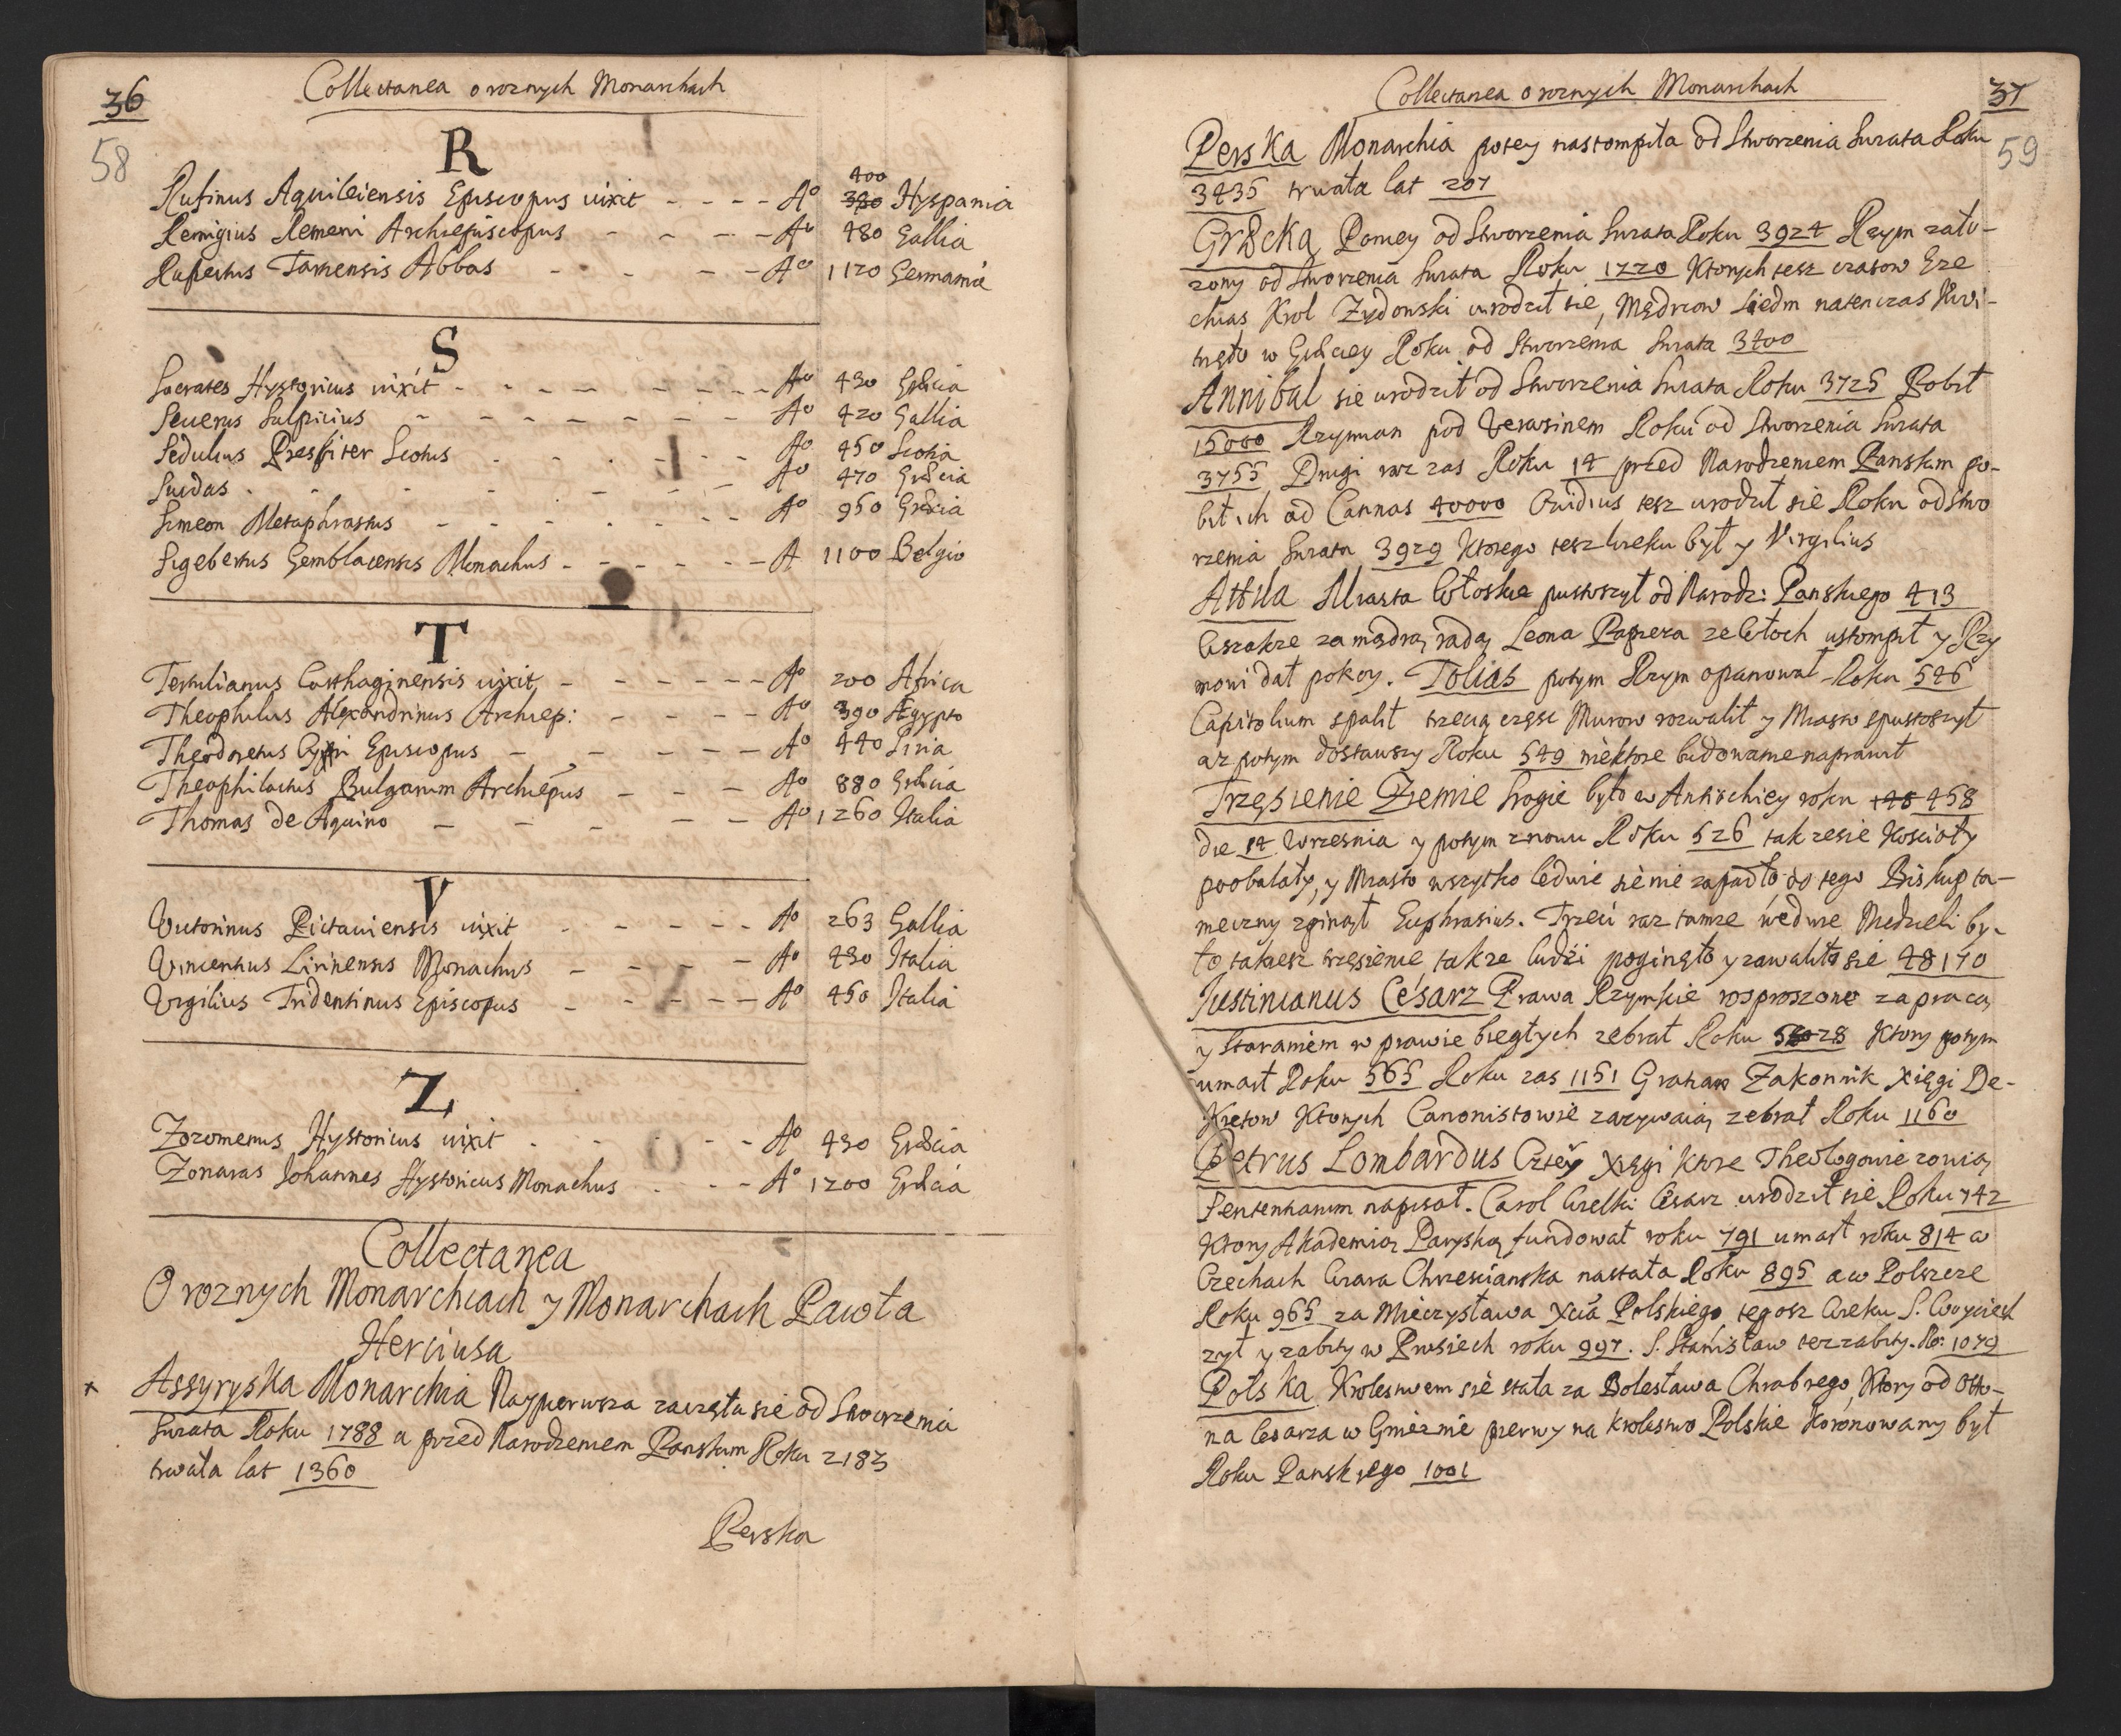 36
Collectanea o roznych Monarchach
58
R
Rufinus Aquileiensis Episcopus vixit - - - - Aº 400 380 Hyspania
Remigius Remeni Archiepiscopus - - - - Aº 480 Gallia
Rupertus Abbas - - - - - Aº 1120 Germania
S
Socrates Hystoricus vixit - - - - - - - - Aº 430 Græcia
Seuerus Sulpicius - - - - - - - Aº 420 Gallia
Sedulius Presbiter Scotus - - - - - Aº 450 Scotia
Suidas - - - - - - - Aº 470 Græcia
Simeon Metaphrastus - - - - - - - Aº 950 Græcia
Sigebertus Gemblacensis Monachus - - - - - - A 1100 Belgio
T
Tertulianus Carthaginensis vixit - - - - - - Aº 200 Africa
Theophilus Alexandrinus Archiep: - - - - Aº 390 Ægypto
Theodoretus Cypri Episcopus - - - - - Aº 440 Siria
Theophilactus Bulgarum Archiepus - - - Aº 880 Græcia
Thomas de Aquino - - - - - Aº 1260 Italia
V
Victorinus Pictauiensis vixit - - - - - Aº 263 Gallia
Vincentius Lirinensis Monachus - - - - Aº 430 Italia
Virgilius Tridentinus Episcopus - - - - - Aº 450 Italia
Z
Zozomenus Hystoricus vixit - - - - - - Aº 430 Græcia
Zonaras Johannes Hystoricus Monachus - - - Aº 1200 Græcia
Collectanea
O roznych Monarchiach y Monarchach Pawła
Herciusa
x Assyryska Monarchia Naypierwsza zaczęła sie od Stworzenia
Swiata Roku 1788 a przed Narodzeniem Panskim Roku 2183
trwała lat 1360
Perska
Collectanea o roznych Monarchach
37
59
Perska Monarchia potey nastompiła od Stworzenia Swiata Roku
3435 trwała lat 207
Græcka Potney od Stworzenia Swiata Roku 3924 Rzym zało-
zony od Stworzenia Swiata Roku 1220 Ktorych tesz czasow Eze
chias Krol Zydowski urodził sie, Mędrcow Siedm natenczas Kwi-
tnęło w Græciey Roku od Stworzenia Swiata 3400
Annibal sie urodził od Stworzenia Swiata Roku 3725 Pobił
15000 Rzymian pod Roku od Stworzenia Swiata
3755 Drugi raz zas Roku 14 przed Narodzeniem Panskim po-
bił ich ad Cannas 40000 Ovidius tesz urodził sie Roku od Stwo
rzenia Swiata 3929 Ktorego tesz wieku był y Virgilius
Attila Miasta Włoskie pustoszył od Narodz: Panskiego 413
Wszakze za mądrą radą Leona Papieza ze Włoch ustompił y Rzy
mowi dał pokoy. Tolias potym Rzym opanował Roku 546
Capitolium spalił trzecią częsc Murow rozwalił y Miasto spustoszył
az potym dostawszy Roku 549 niektore budowanie naprawił
Trzęsienie Ziemie srogie było w Antiochiey roku 458
die 14 Wrzesnia y potym znowu Roku 526 tak ze sie Koscioły
poobalały, y Miasto wszytko ledwie sie nie zapadło do tego Biskup ta-
meczny zginął Euphrasius. Trzeci raz tamze wedwie Niedzieli by-
ło takiesz trzęsienie, tak ze ludzi poginęło y zawaliło sie 48170
Justinianus Cesarz Prawa Rzymskie rosproszone za pracą
y staraniem w prawie biegłych zebrał Roku 528 Ktory potym
umarł Roku 565 Roku zas 1151 Gratian Zakonnik Xięgi De-
kretow Ktorych Canonistowie zazywaią zebrał Roku 1160
Petrus Lombardus Cztery Xięgi Ktore Theologowie zowią
Sententiarum napisał. Carol Wielki Cesarz urodził sie Roku 742
Ktory Akademią Paryską fundował roku 791 umarł roku 814 w
Czechach Wiara Chrzescianska nastała Roku 895 a w Polszcze
Roku 965 za Mieczysława Xcia Polskiego, tegosz Wieku S. Woyciech
zył y zabity w Prusiech roku 997. S. Stanisław tez zabity. Ro: 1079
Polska Krolestwem sie stała za Bolesława Chrabrego, Ktory od Otto-
na Cesarza w Gnieznie pierwy na Krolestwo Polskie Koronowany był
Roku Panskiego 1001